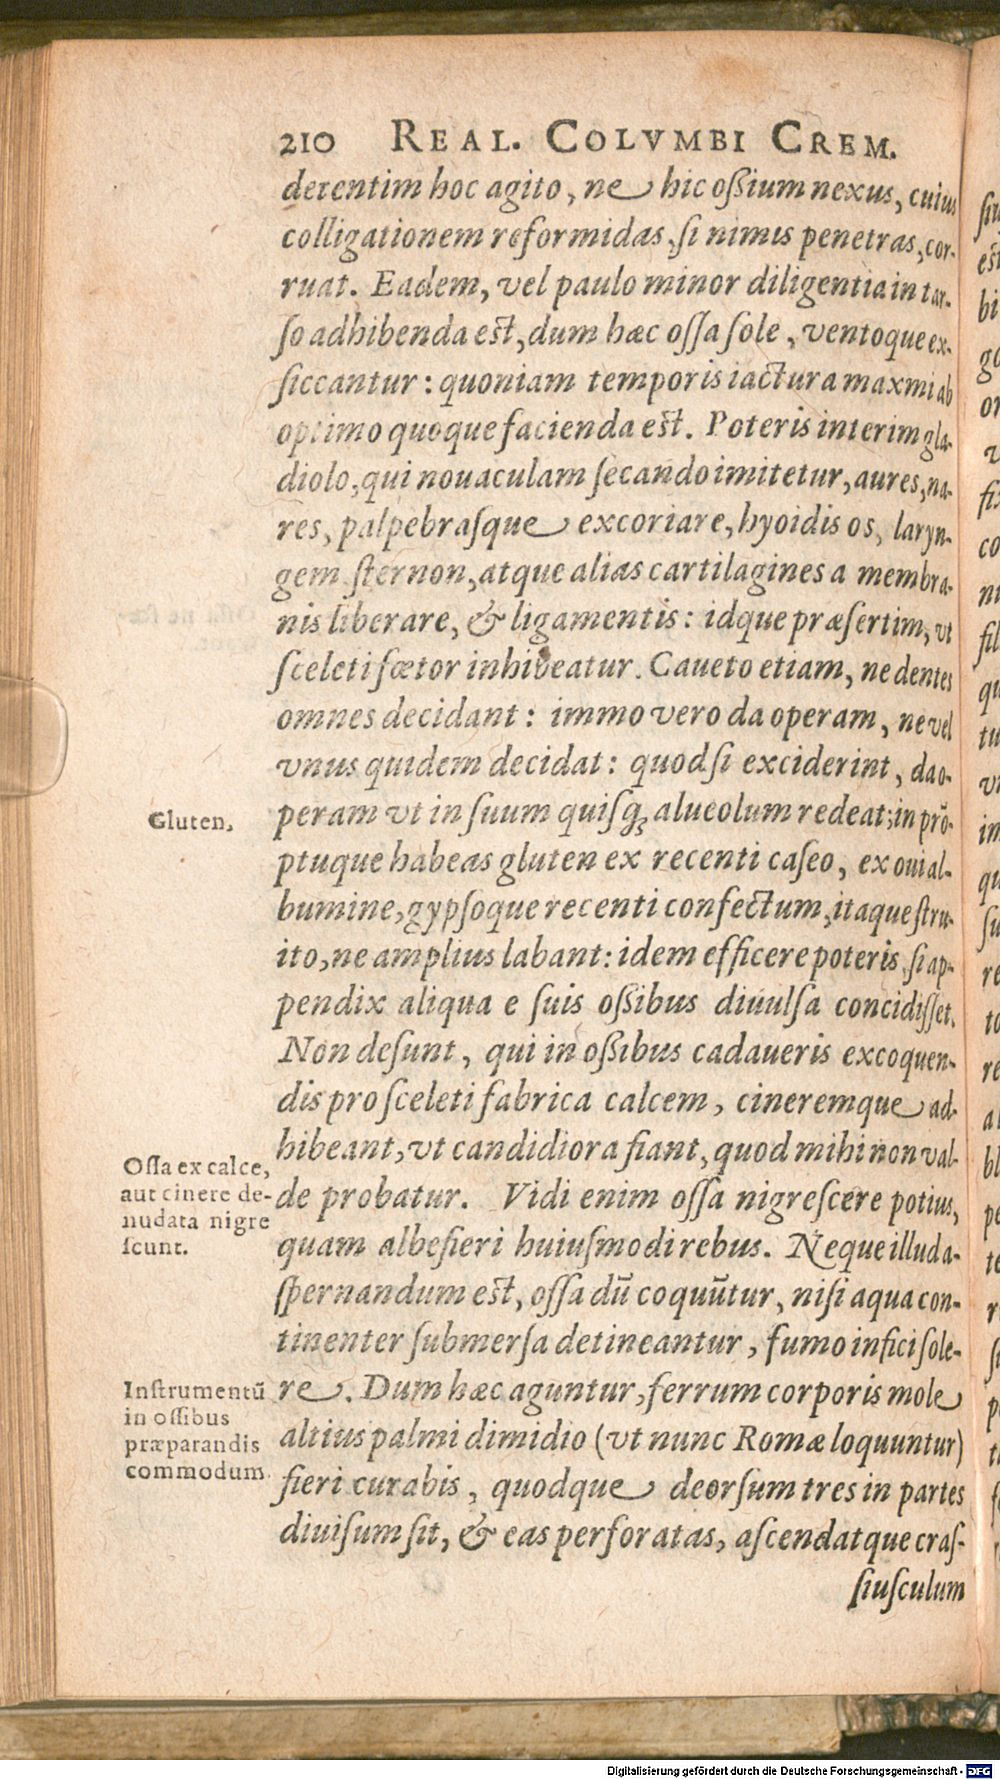 210 REAL. COLVMBI CREM.
detentim hoc agito, ne hic oßium nexus, cuius
colligationem reformidas, ſi nimis penetras, cor-
ruat. Eadem, vel paulo minor diligentia in tar-
ſo adhibenda est, dum hæc oſſa ſole, ventoque ex-
ſiccantur: quoniam temporis iactura maxmi ab
optimo quoque facienda est. Poteris interim gla-
diolo, qui nouaculam ſecando imitetur, aures, na-
res, palpebraſque excoriare, hyoidis os, laryn-
gem ſternon, atque alias cartilagines a membra-
nis liberare, & ligamentis: idque præſertim, vt
ſceleti fœtor inhibeatur. Caueto etiam, ne dentes
omnes decidant: immo vero da operam, ne vel
vnus quidem decidat: quod ſi exciderint, da o-
Gluten,
peram vt in ſuum quiſq; alueolum redeat; in prō-
ptuque habeas gluten ex recenti caſeo, ex oui al-
bumine, gypſoque recenti confectum, itaque ſtru-
ito, ne amplius labant: idem efficere poteris, ſi ap-
pendix aliqua e ſuis oßibus diuulſa concidiſſet.
Non deſunt, qui in oßibus cadaueris excoquen-
dis pro ſceleti fabrica calcem, cineremque ad-
hibeant, vt candidiora fiant, quod mihi non val-
Oſſa ex calce,
aut cinere de-
nudata nigre
ſcunt.
de probatur. Vidi enim oſſa nigreſcere potius,
quam albefieri huiuſmodi rebus. Neque illud a-
ſpernandum est, oſſa dū coquūtur, niſi aqua con-
tinenter ſubmerſa detineantur, fumo infici ſole-
Inſtrumentū
in oſſibus
præparandis
commodum.
re. Dum hæc aguntur, ferrum corporis mole
altius palmi dimidio (vt nunc Romæ loquuntur)
fieri curabis, quodque deorſum tres in partes
diuiſum ſit, & eas perforatas, aſcendatque craſ-
ſiuſculum
Digitalisierung gefördert durch die Deutsche Forschungsgemeinschaft - DFG